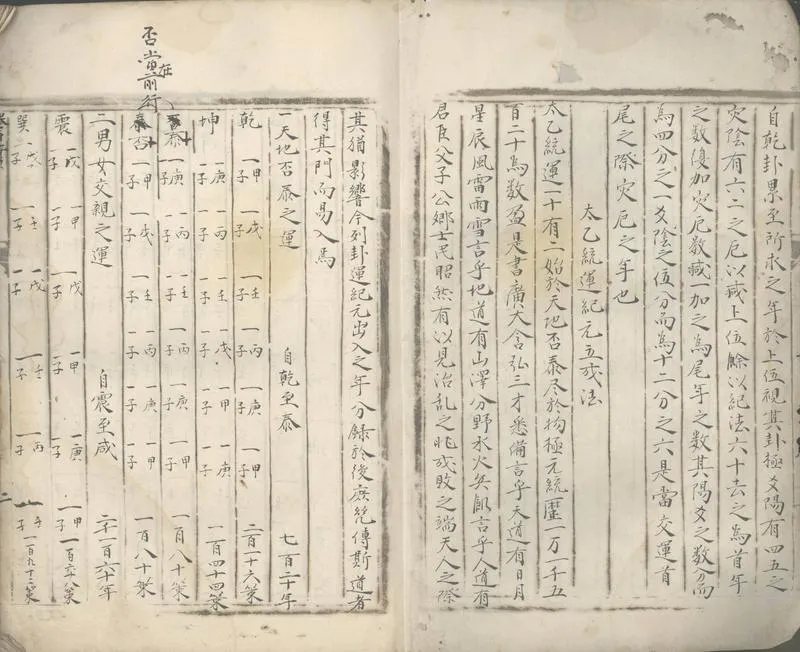 自乾卦累至所求之年於上伍視其卦極爻陽有四五之
灾陰有六二之厄以减上伍餘以紀法六十去之為首年
之數復加灾厄數减一加之為尾年之數其陽爻之數分而
為四分之一爻陰之伍分而為十二分之六是當交運首
尾之際灾厄之年也
太乙統運紀元五戎法
太乙統運一十有二始於天地否泰尽於物極元統歷一万一千五
百二十為數盈是書廣大含弘三才悉備言乎天道有日月
星辰風雷雨雪言乎地道有山澤分野水火兵飢言乎人道有
君臣父子公卿士民昭然有以見治乱之兆成敗之端天人之際
其猶影響今列卦運紀元出入之年分錄於後庶凢傳斯道者
得其門而易入焉
一天地否泰之運 自乾至泰 七百二十年
乾 一甲子 一戊子 一壬子 一丙子 一庚子 一甲子 二百一十六策
坤 一庚子 一丙子 一壬子 一戊子 一甲子 一庚子 一百四十四策
否當在前行
否泰 一庚子 一丙子 一壬子 一丙子 一庚子 一甲子 一百八十策
泰否 一甲子 一戊子 一壬子 一丙子 一庚子 一甲子 一百八十策
二男女交親之運 自震至咸 二千一百六十年
震 一戊子 一甲子 一戊子 一甲子 一庚子 一甲子 一百六十八策
巽 一戊子 一壬子 一戊子 一壬子 一丙子 一壬子 一百九十二策
二